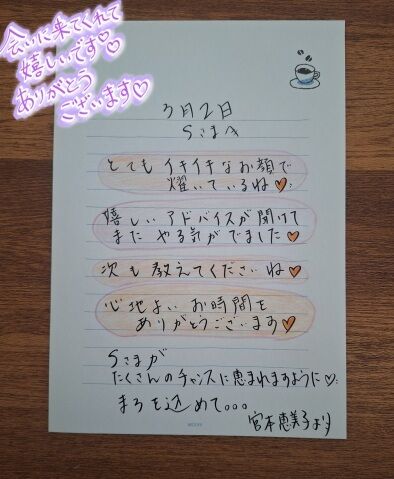 会いに来てくれて
嬉しいです♡
ありがとう
ございます♡
3月2日
Sさまへ
とても イキイキなお顔で
燿いているね♡
嬉しいアドバイスが聞けて
また やる気がでました♡
次も教えてくださいね♡
心地よい お時間を
ありがとうございます♡
Sさまが
たくさんのチャンスに恵まれますように♡
まろを込めて。。。
宮本恵美子より